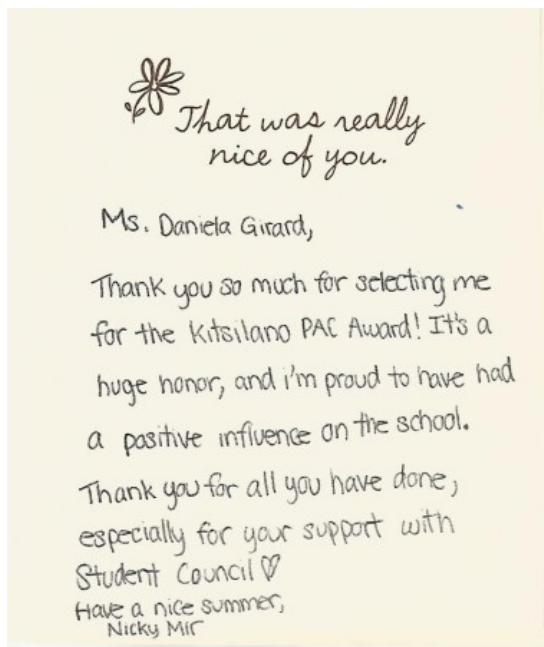 That was really
nice of you.
Ms. Daniela Girard,
Thank you so much for selecting me
for the Kitsilano PAC Award! It's a
huge honor, and i'm proud to have had
a positive influence on the school.
Thank you for all you have done,
especially for your support with
Student Council ♡
Have a nice summer,
Nicky Mir